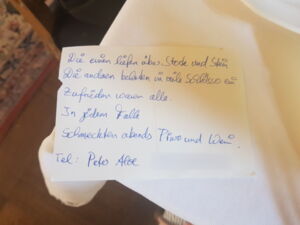 Die einen liefen über Stock und Stein
Die anderen kehrten in viele Schlösser ein
Zufrieden waren alle.
In jedem Falle
Schmeckten abends Pivo und Wein.
Tel: Peto Aloe